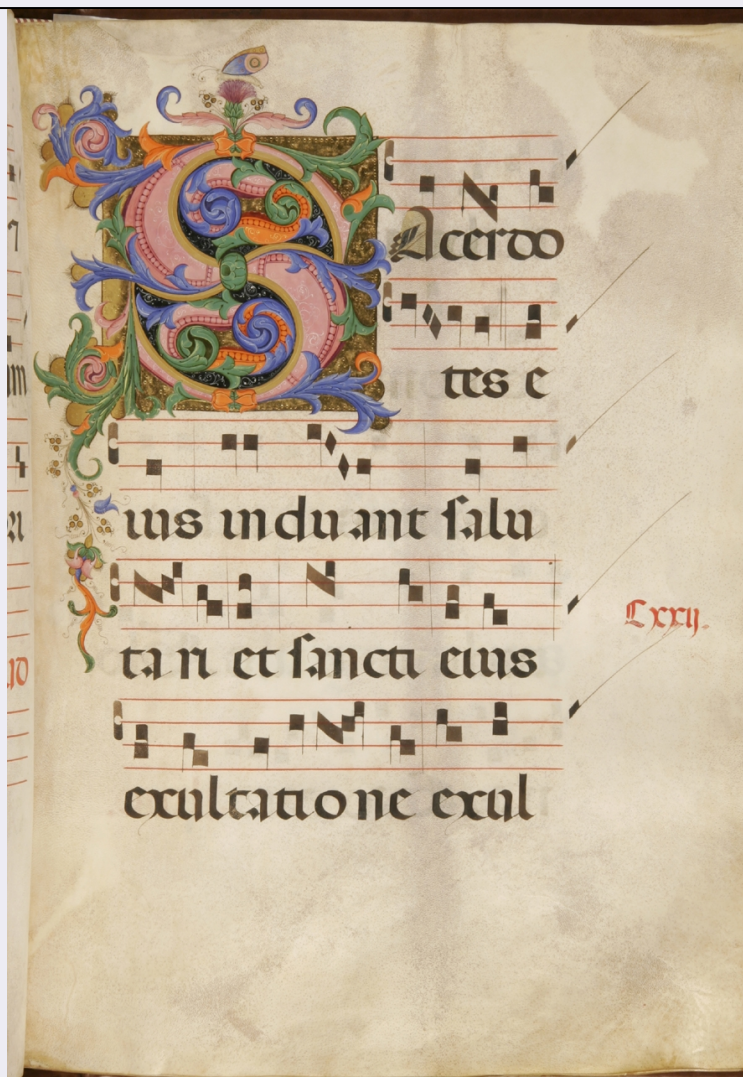 SAcerdo
tes e
ius induant salu
ta ri et sancti eius
Cxxij.
exultatio ne exul